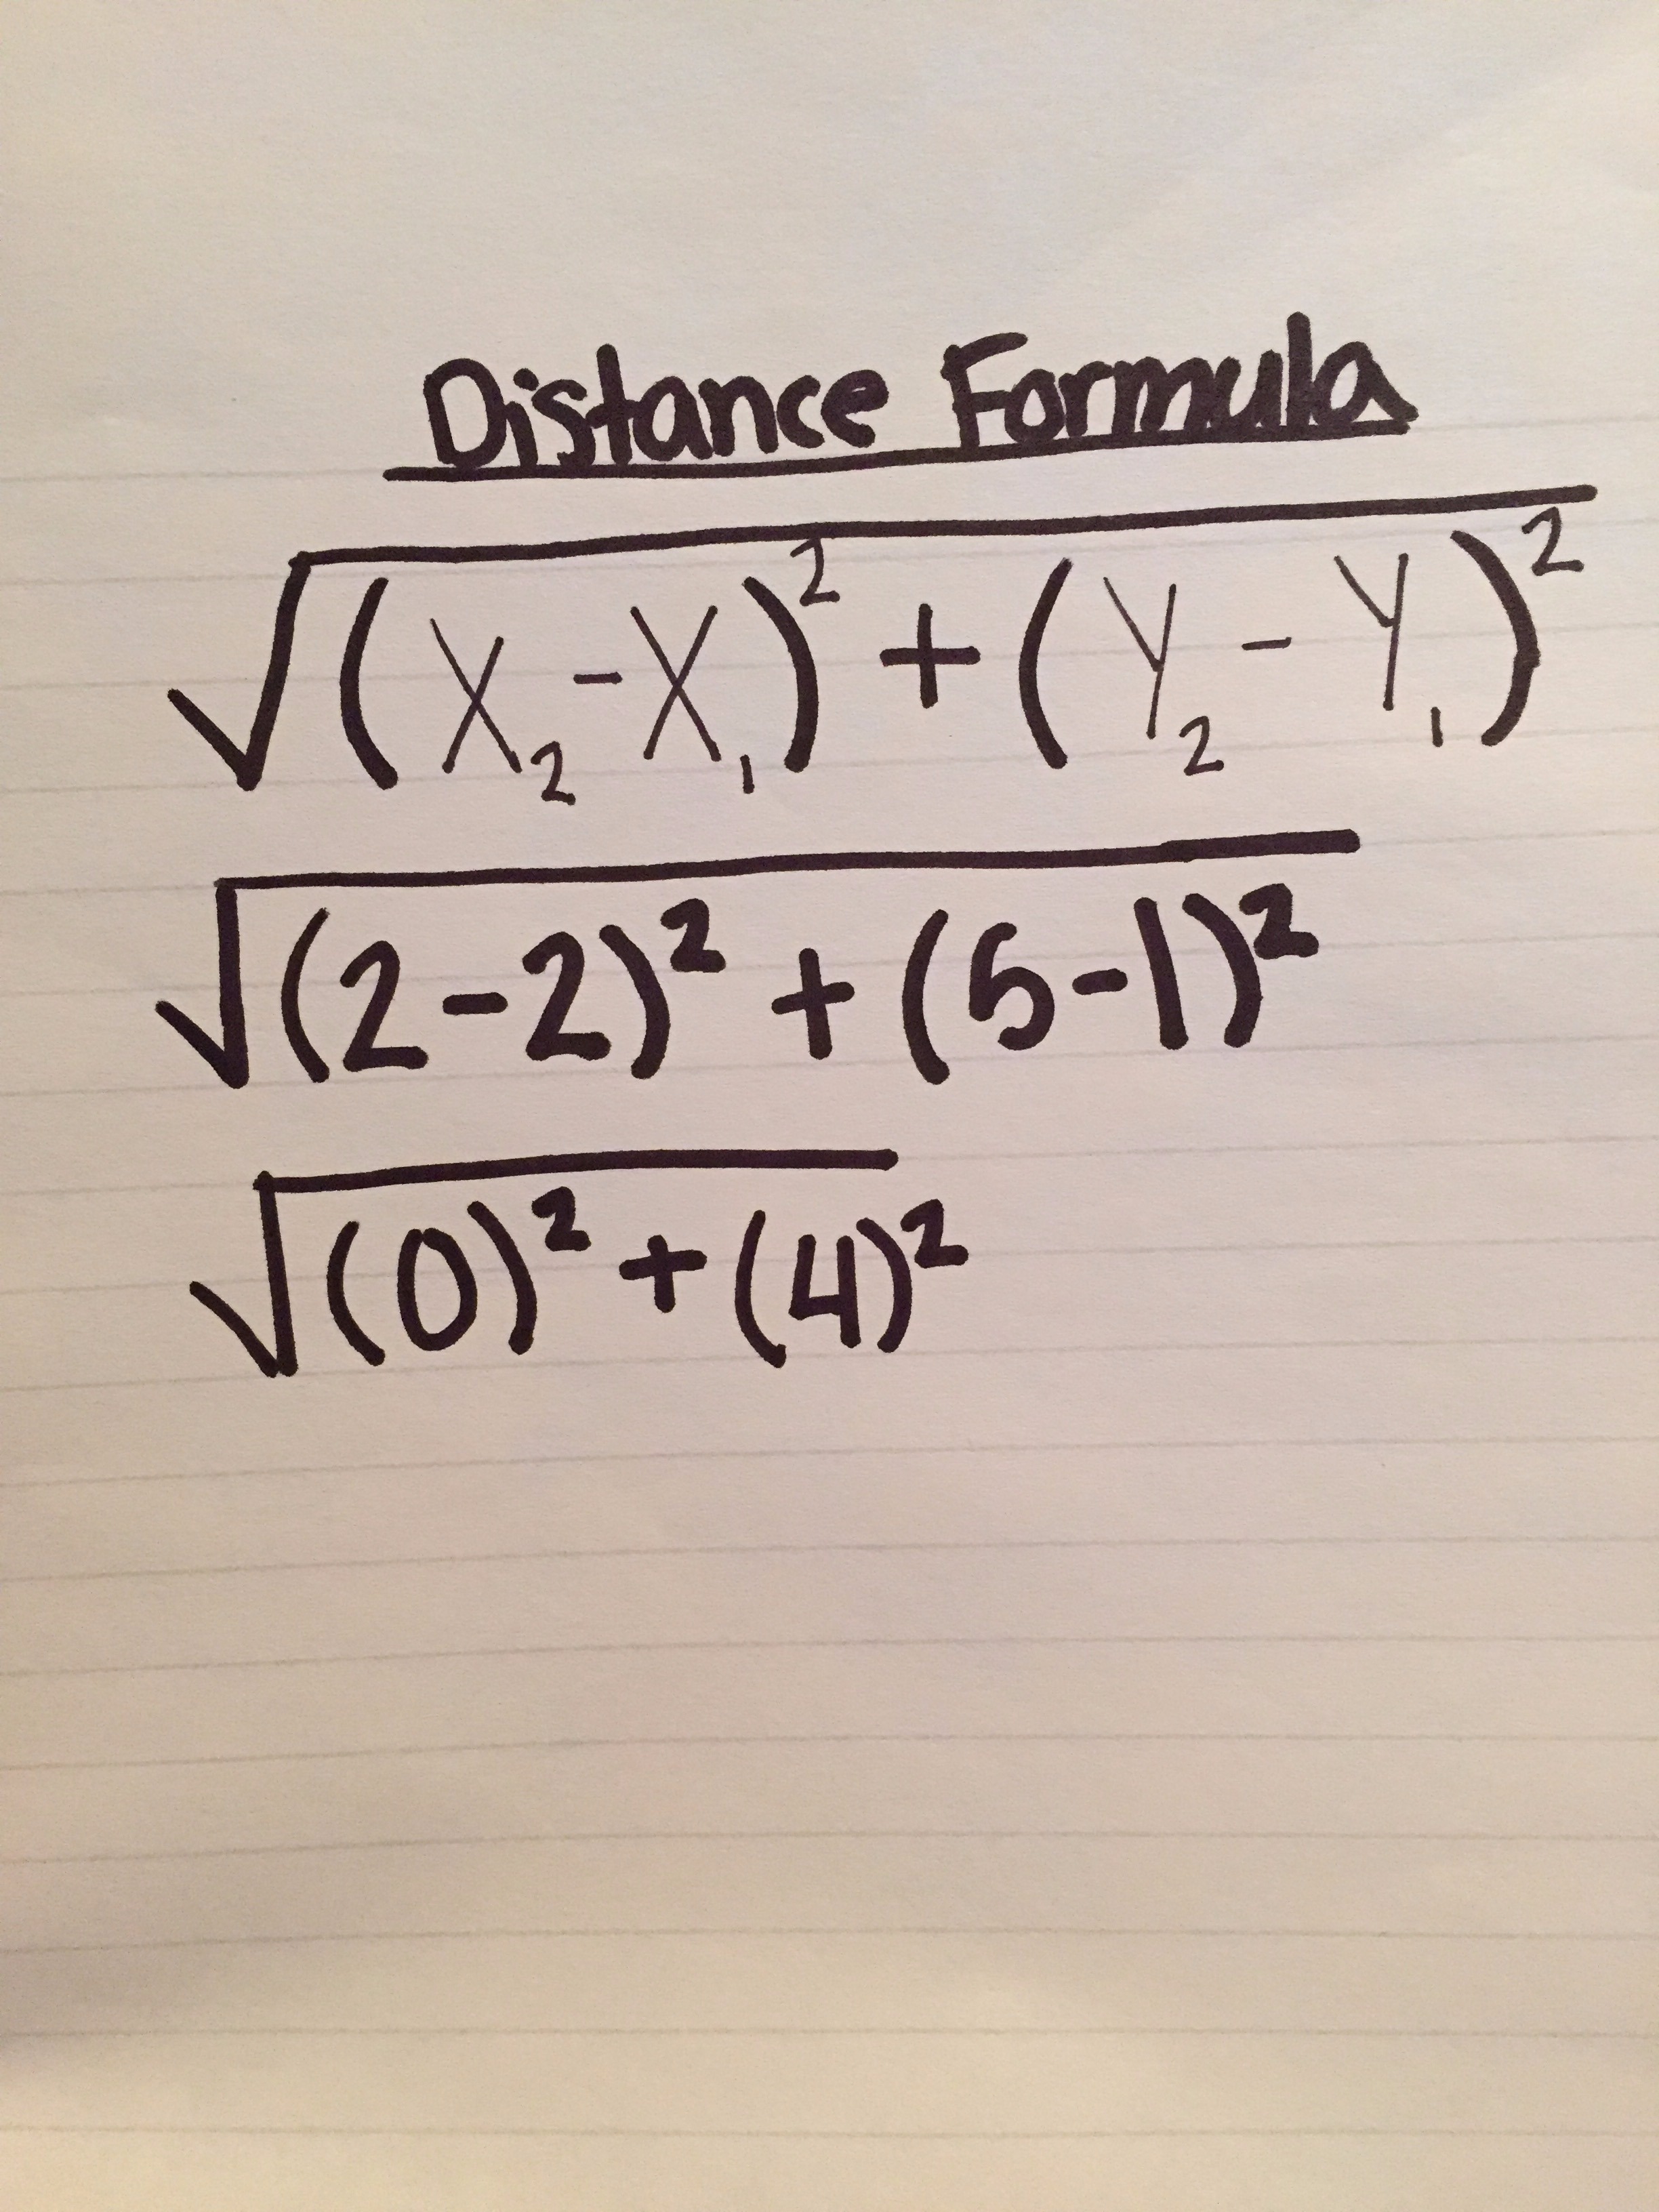 Distance Formula
√(X₂-X₁)² + (Y₂-Y₁)²
√(2-2)² + (5-1)²
√(0)² + (4)²